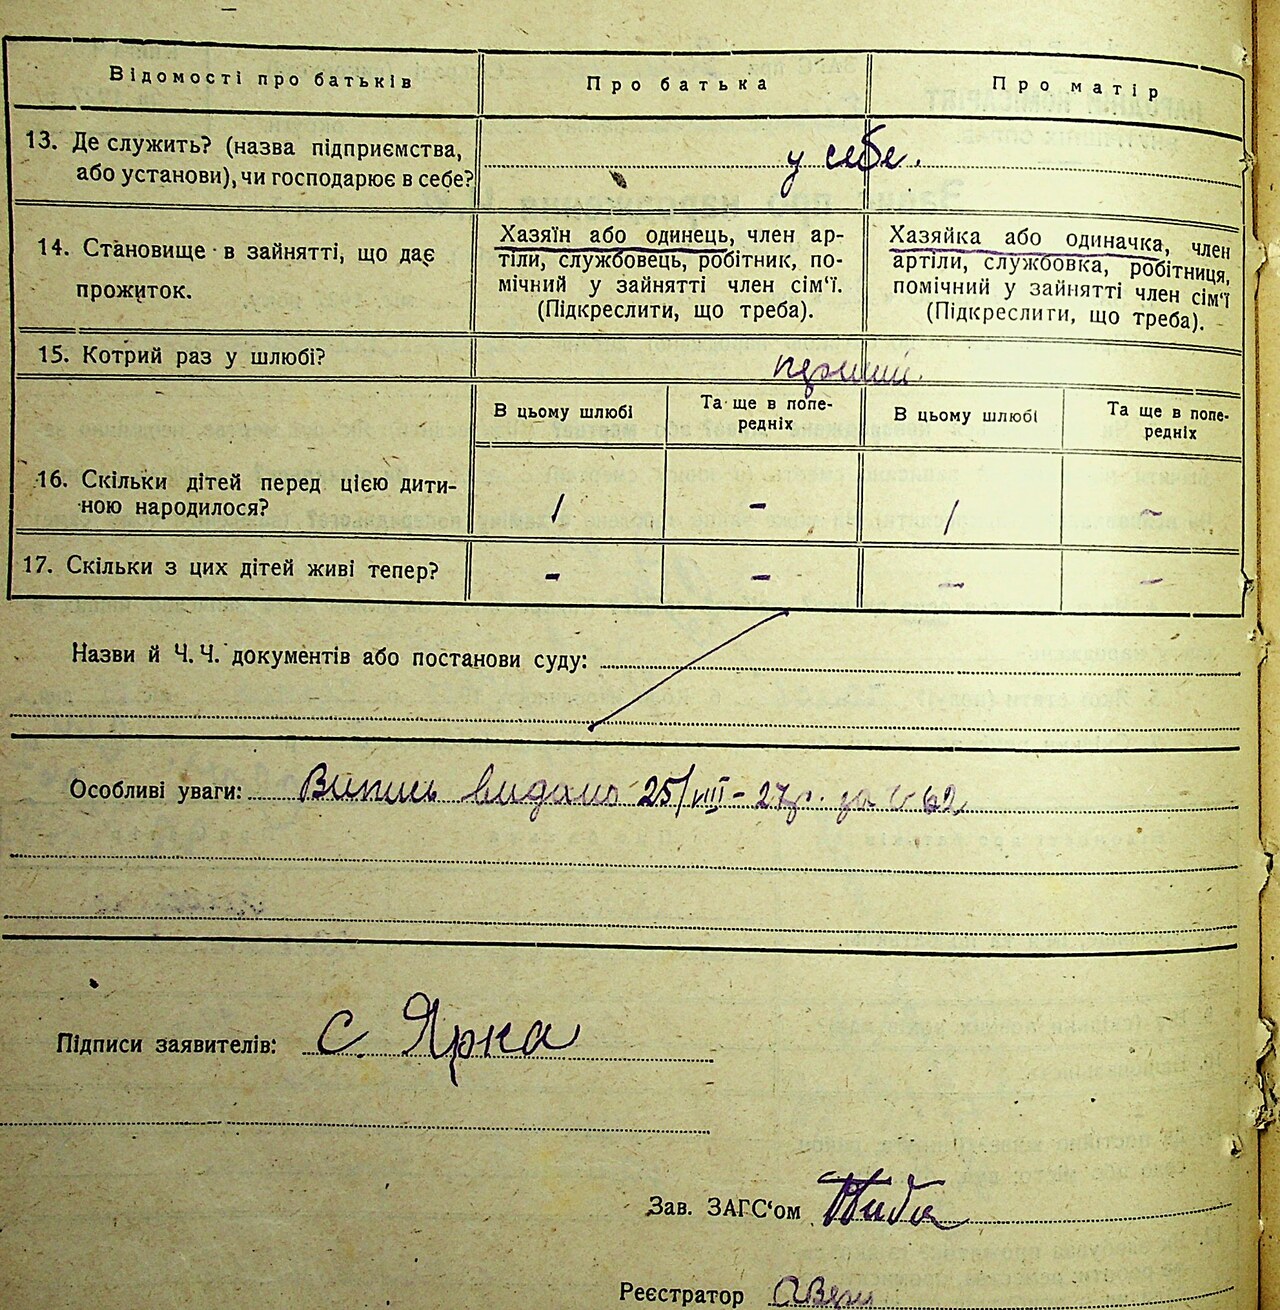 Відомості про батьків
Про батька
Про матір
13. Де служить? (назва підприємства,
або установи), чи господарює в себе?
у себе.
14. Становище в зайнятті, що дає
прожиток.
Хазяїн або одинець, член ар-
тіли, службовець, робітник, по-
мічний у зайнятті член сім‘ї.
(Підкреслити, що треба).
Хазяйка або одиначка, член
артіли, службовка, робітниця,
помічний у зайнятті член сім‘ї
(Підкреслити, що треба).
15. Котрий раз у шлюбі?
перший.
В цьому шлюбі
Та ще в попе-
редніх
В цьому шлюбі
Та ще в попе-
редніх
16. Скільки дітей перед цією дити-
ною народилося?
1 - 1 -
17. Скільки з цих дітей живі тепер?
- - - -
Назви й Ч. Ч. документів або постанови суду:
Особливі уваги: Випись видано 25/VIII - 27р. за № 62
Підписи заявителів: С. Ярка
Зав. ЗАГС‘ом
Реєстратор